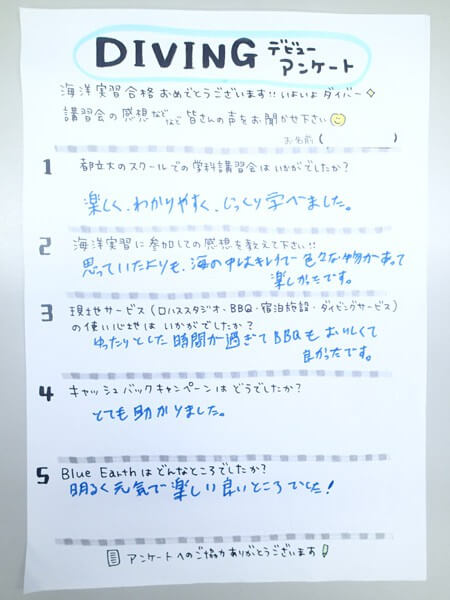 DIVING デビュー
アンケート
海洋実習合格おめでとうございます!! いよいよダイバー✧
講習会の感想などなど皆さんの声をお聞かせ下さい☺
お名前 ( )
1 都立大のスクールでの学科講習会はいかがでしたか?
楽しく、わかりやすく、じっくり学べました。
2 海洋実習に参加しての感想を教えて下さい!!
思っていたよりも、海の中はキレイで色々な物があって
楽しかったです。
3 現地サービス(ロハススタジオ・BBQ・宿泊施設・ダイビングサービス)
の使い心地はいかがでしたか?
ゆったりとした時間が過ぎてBBQもおいしくて
良かったです。
4 キャッシュバックキャンペーンはどうでしたか?
とても助かりました。
5 Blue Earthはどんなところでしたか?
明るく元気で楽しい良いところでした!
アンケートへのご協力ありがとうございます